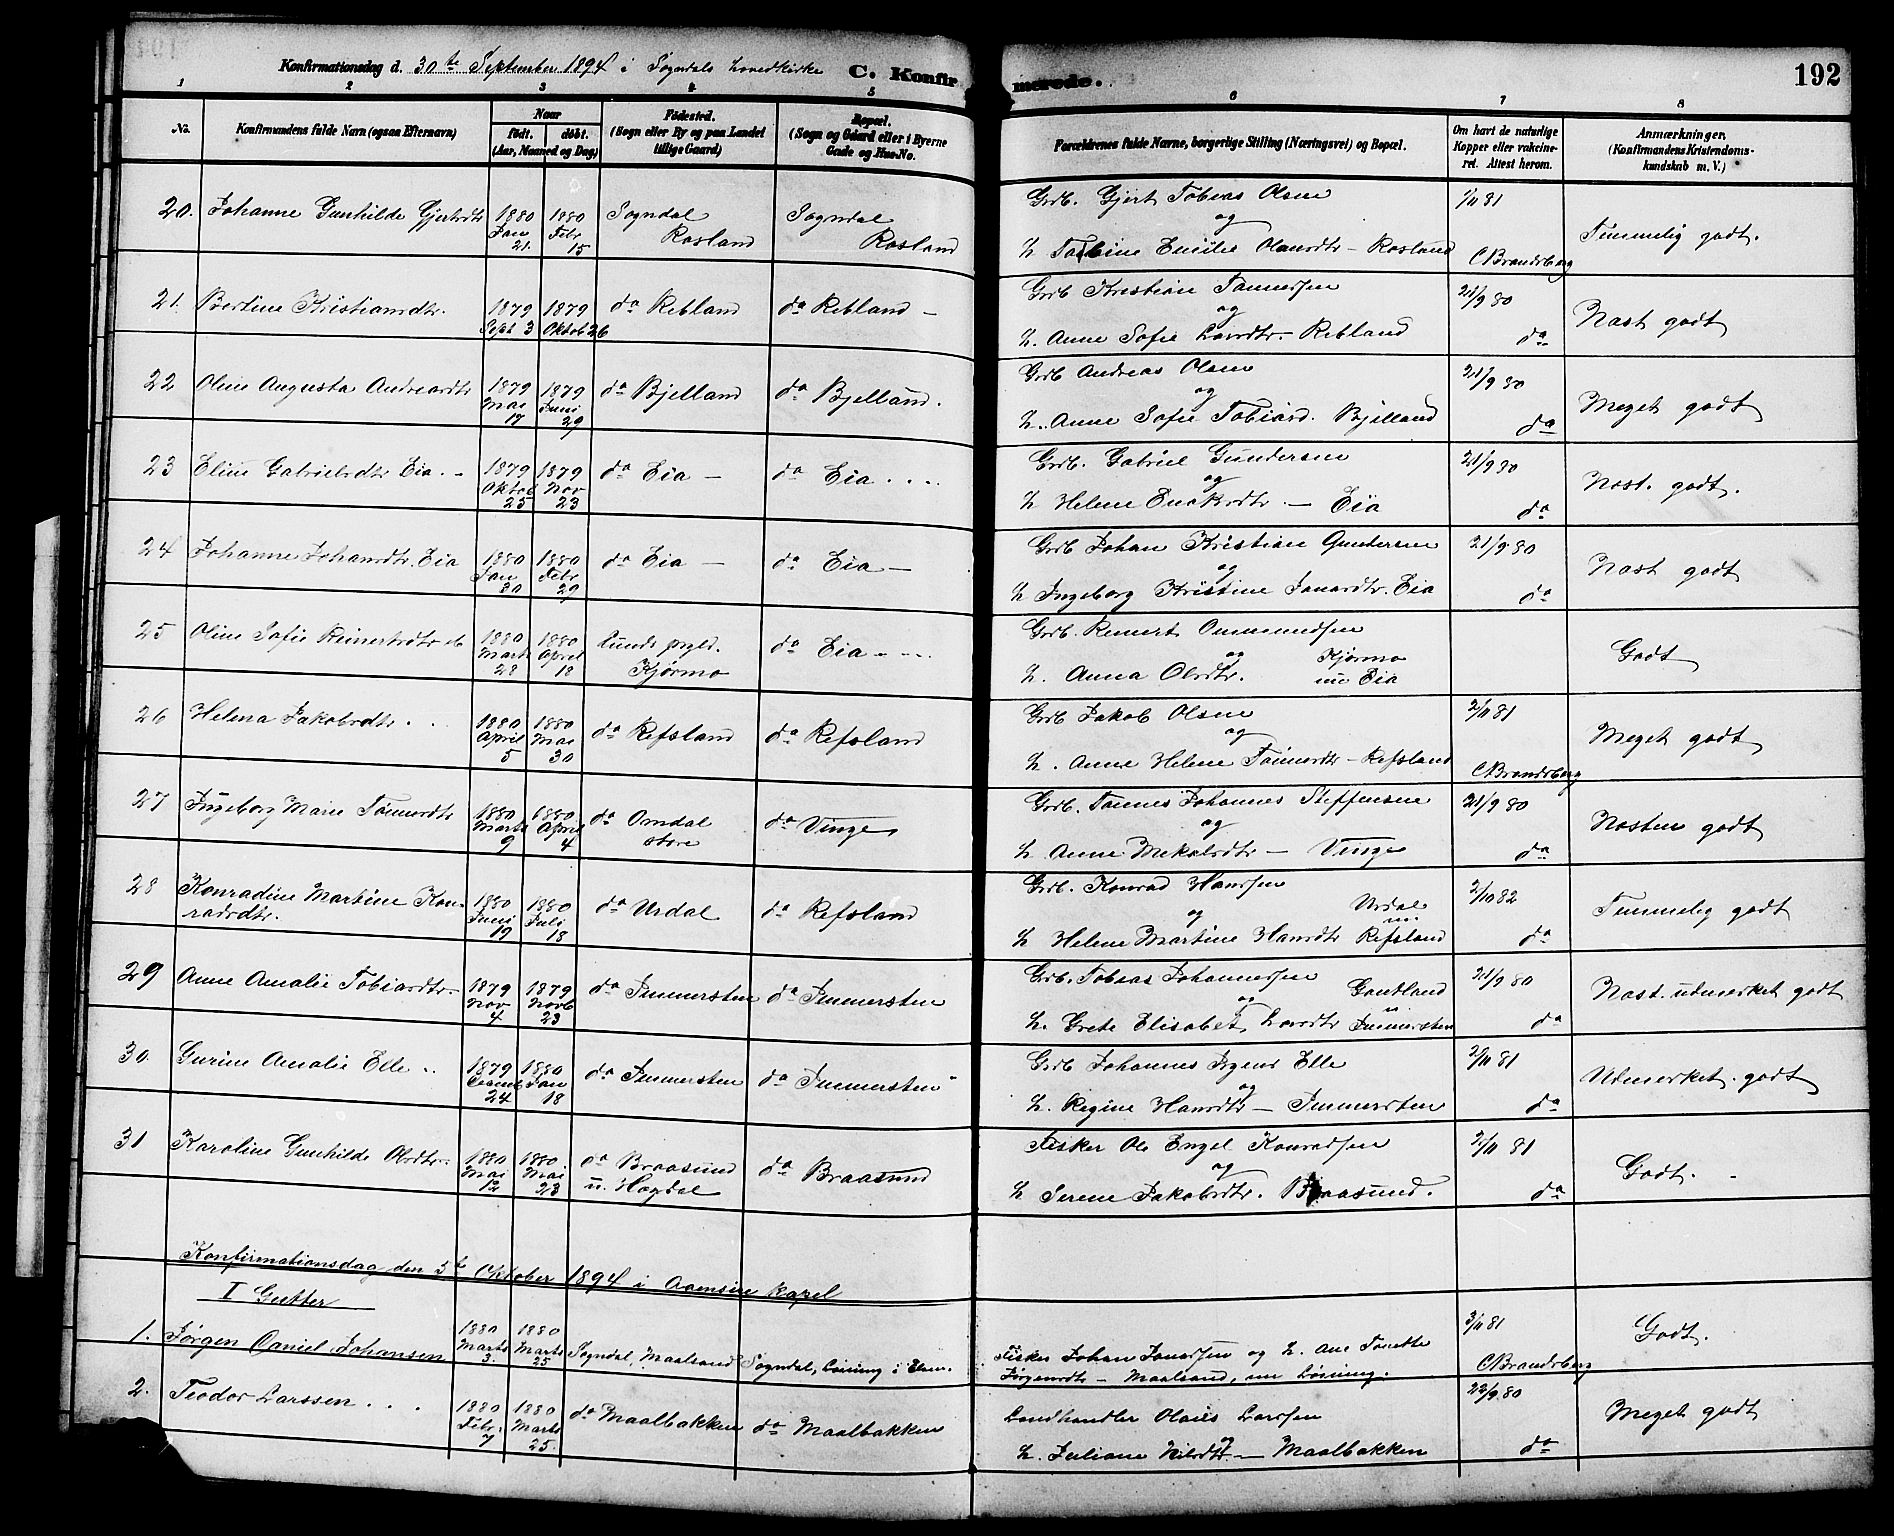 Konfirmationsdag d. 30te September 1894 i Sogndals hovedkirke C. Konfirmerede. 192
1 2 3 4 5 6 7 8
No. Konfirmandens fulde Navn (ogsaa Efternavn) Naar født. døbt. (Aar, Maaned og Dag) Fødested. (Sogn eller By og paa Landet tillige Gaard) Bopæl. (Sogn og Gaard eller i Byerne Gade og Hus-No. Forældrenes fulde Navne, borgerlige Stilling (Næringsvei) og Bopæl. Om havt de naturlige Kopper eller vakcineret. Attest herom. Anmærkninger. (Konfirmandens Kristendomskundskab m. V.)
20. Johanne Gunhilde Gjertsdtr 1880 Jan 21. 1880 Febr 15 Sogndal Rosland Sogndal Rosland Grdb. Gjert Tobias Olsen og H. Emilie Olausdtr - Rosland 1/11 81 C Brandsberg Temmelig godt.
21. Bertine Kristiansdtr. 1879 Sept 3 1879 Oktob 26 do Rebland do Rebland - Grdb Kristian Tønnesen og H. Anne Sofie Larsdtr. - Rebland 21/9 80 do Næst godt
22 Oline Augusta Andreasdtr 1879 Mai 17 1879 Juni 29 do Bjelland do Bjelland. Grdb Andreas Olsen og H. Anne Sofie Tobiasd. Bjelland 21/9 80 do Meget godt
23 Eline Gabrielsdtr Eia. - 1879 Oktob 25 1879 Nov 23 do Eia - do Eia .... Grdb. Gabriel Gundersen og H Helene Enoksdtr. - Eia 21/9 80 do Næst. godt.
24 Johanne Johansdtr. Eia 1880 Jan 30 1880 Febr 29 do Eia - do Eia - Grdb Johan Kristian Gundersen og H Ingeborg Kristine Jonasdtr. Eia 21/9 80 do Næst godt
25 Oline Sofie Reinertsdtr 1880 Marts 28 1880 April 18 Lunds prgld. Kjørmo do Eia .... Grdb. Reinert Ommundsen og H. Anna Olsdtr. Kjørmo nu Eia Godt
26 Helena Jakobsdtr. .. 1880 April 5 1880 Mai 30 do Refsland do Refsland Grdb Jakob Olsen og H. Anne Helene Tønnesdtr - Refsland 2/11 81 C Brandsberg Meget godt
27 Ingeborg Marie Tønnesdtr 1880 Marts 9 1880 April 4 do Omdal store do Vinge Grdb. Tønnes Johannes Steffensen og H Anne Mekalsdtr - Vinge 21/9 80 do Næsten godt
28 Konradine Martine Konradsdtr. 1880 Juni 19 1880 Juli 18 do Urdal do Refsland Grdb. Konrad Hansen og H Helene Martine Hansdtr Urdal nu Refsland 2/10 82 do Temmelig godt
29 Anne Amalie Tobiasdtr. 1879 Nov 4 1879 Novb 23 do Immersten do Immersten Grdb. Tobias Johannesen og H. Grete Elisabet Larsdtr Gautland n Immersten 21/9 80 do Næst. udmerket godt
30 Gurine Amalie Elle .. 1879 Decemb 24 1880 Jan 18 do Immersten do Immersten Grdb Johannes Irgens Elle og H. Regine Hansdtr - Immersten 2/11 81 do Udmerket. godt
31 Karoline Gunhilde Olsdtr. 1880 Mai 12 1880 Mai 23 do Braasund u. Haydal do Braasund Fisker Ole Engel Konradsen og H Serene Jakobsdtr. Braasund. 2/11 81 do Godt. -
Konfirmationsdag den 5te Oktober 1894 i Aamsire kapel
I Gutter
1. Jørgen Daniel Johansen 1880 Marts 3. 1880 Marts 25 Sogndal, Maalsand Sogndal, Løining i Elen. Fisker Johan Jonassen og H. Ane Tonette Jørgensdtr - Maalsand, nu Løining. 3/11 81 C Brandsberg Godt.
2. Teodor Larssen ... 1880 Febr. 7 1880 Marts 25. do Maalbakken do Maalbakken Landhandler Olaus Larssen og H. Juliane Nilsdtr. - Maalbakken 22/9 80 do Meget godt